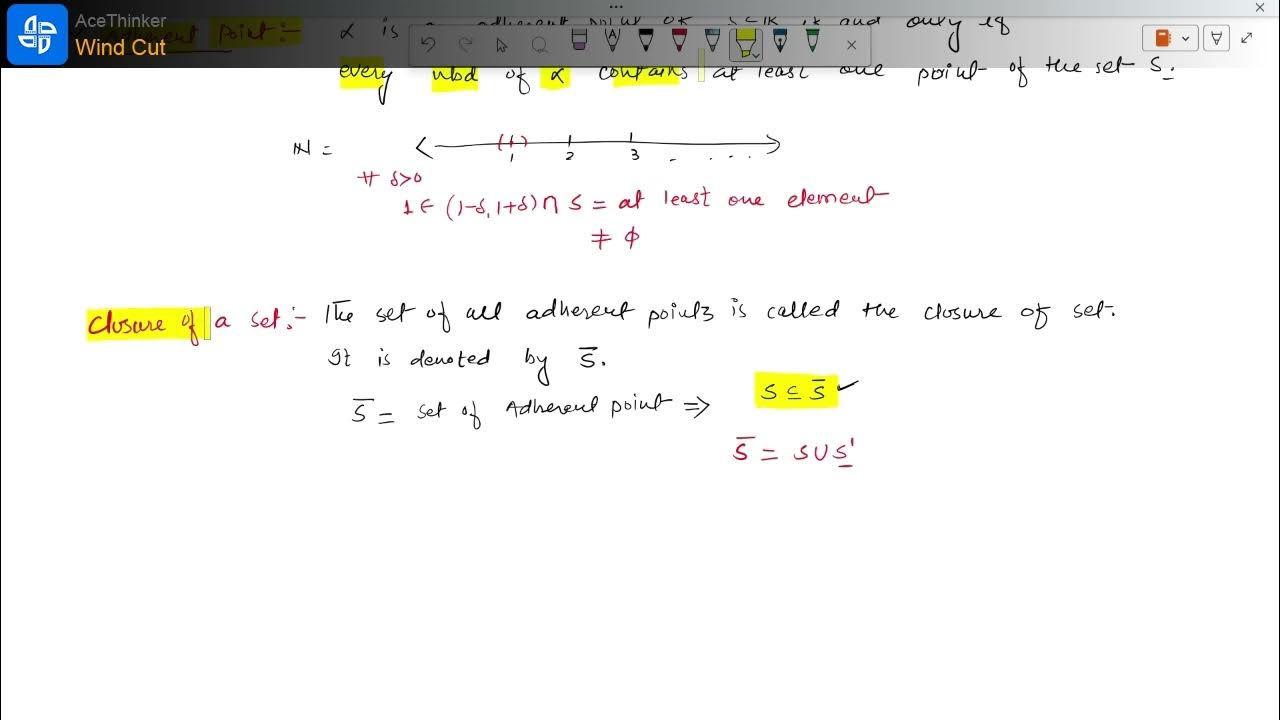 AceThinker
Wind Cut
Adherent Point:- α is an adherent point of S⊆ℝ if and only if
every nbd of α contains at least one point of the set S.
ℕ =
1 2 3 - . ...
∀ δ>0
1 ∈ (1-δ, 1+δ) ∩ S = at least one element
≠ ϕ
Closure of a set:- The set of all adherent points is called the closure of set.
It is denoted by S̅.
S̅ = set of Adherent point ⇒ S ⊆ S̅ ✓
S̅ = S∪S'